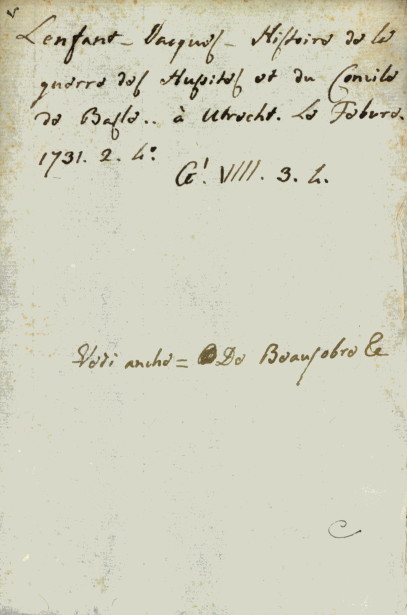 Lenfant = Jacques = Histoire de la
guerre des Hussites et du Concile
de Basle.. à Utrecht. Le Febure.
1731. 2. 4°.
VIII. 3. 4.
Vedi anche = De Beausobre &c